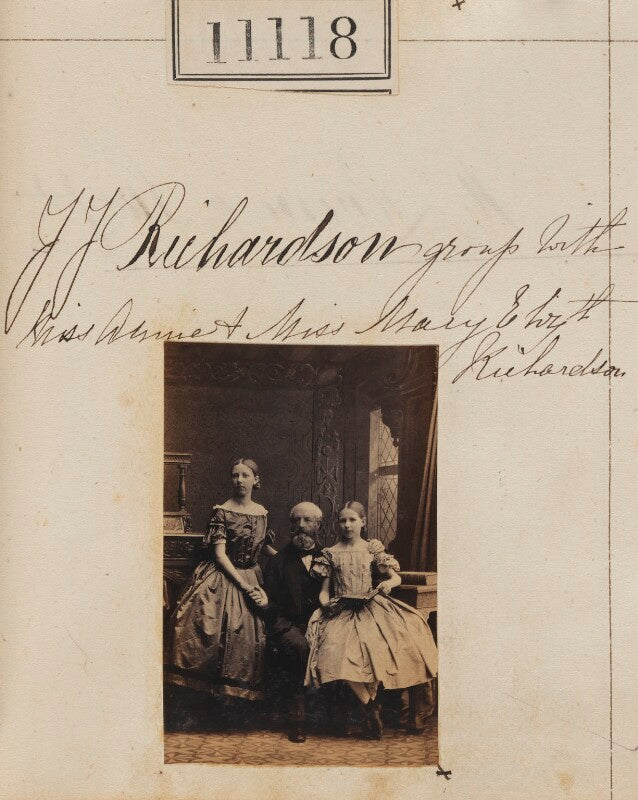 11118
JJ Richardson group with
Miss Annie & Miss Mary Elizth
Richardson